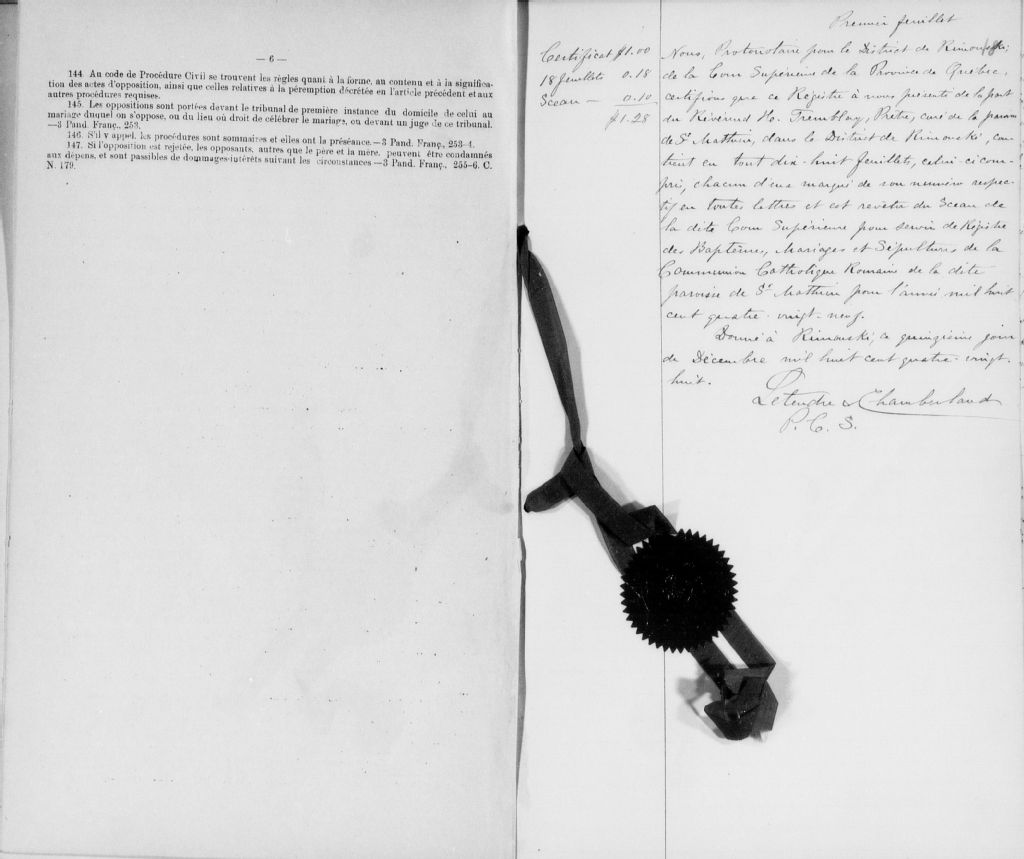 — 6 —
144. Au code de Procédure Civil se trouvent les règles quant à la forme, au contenu et à la significa-
tion des actes d'opposition, ainsi que celles relatives à la péremption décrétée en l'article précédent et aux
autres procédures requises.
145. Les oppositions sont portées devant le tribunal de première instance du domicile de celui au
mariage duquel on s'oppose, ou du lieu où droit de célébrer le mariage, ou devant un juge de ce tribunal.
—3 Pand. Franç., 253.
146. S'il y appel, les procédures sont sommaires et elles ont la préséance.—3 Pand. Franç., 253-4.
147. Si l'opposition est rejetée, les opposants, autres que le père et la mère, peuvent être condamnés
aux dépens, et sont passibles de dommages-intérêts suivant les circonstances—3 Pand. Franç., 255-6. C.
N. 179.
Premier feuillet
Certificat $1.00
18 feuillets 0.18
Sceau — 0.10
$1.28
Nous, Protonotaire pour le District de Rimouski,
de la Cour Supérieure de la Province de Québec,
certifions que ce Régistre à nous présenté de la part
du Révérend Ho. Tremblay, Prêtre, curé de la paroisse
de St Mathieu, dans le District de Rimouski, con-
tient en tout dix-huit feuillets, celui-ci com-
pris, chacun d'eux marqué de son numéro respec-
tif en toutes lettres et est revêtu du Sceau de
la dite Cour Supérieure pour servir de Régistre
des Baptêmes, Mariages et Sépultures de la
Communion Catholique Romaine de la dite
paroisse de St Mathieu pour l'année mil huit
cent quatre-vingt-neuf.
Donné à Rimouski, ce quinzième jour
de Décembre mil huit cent quatre-vingt-
huit.
Letendre & Chamberland
P. C. S.